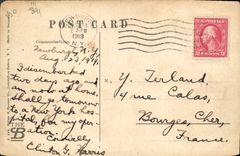 POST CARD
Newburgh, N.Y.
Aug. 23, 1919
I disembarked
two days ago and
am now at home.
Shall go tomorrow
to a New York hos-
pital, for my oper-
ation.
Cordially,
Clinton G. Harris
Y. Terland,
4 rue Calas,
Bourges, Cher,
France.